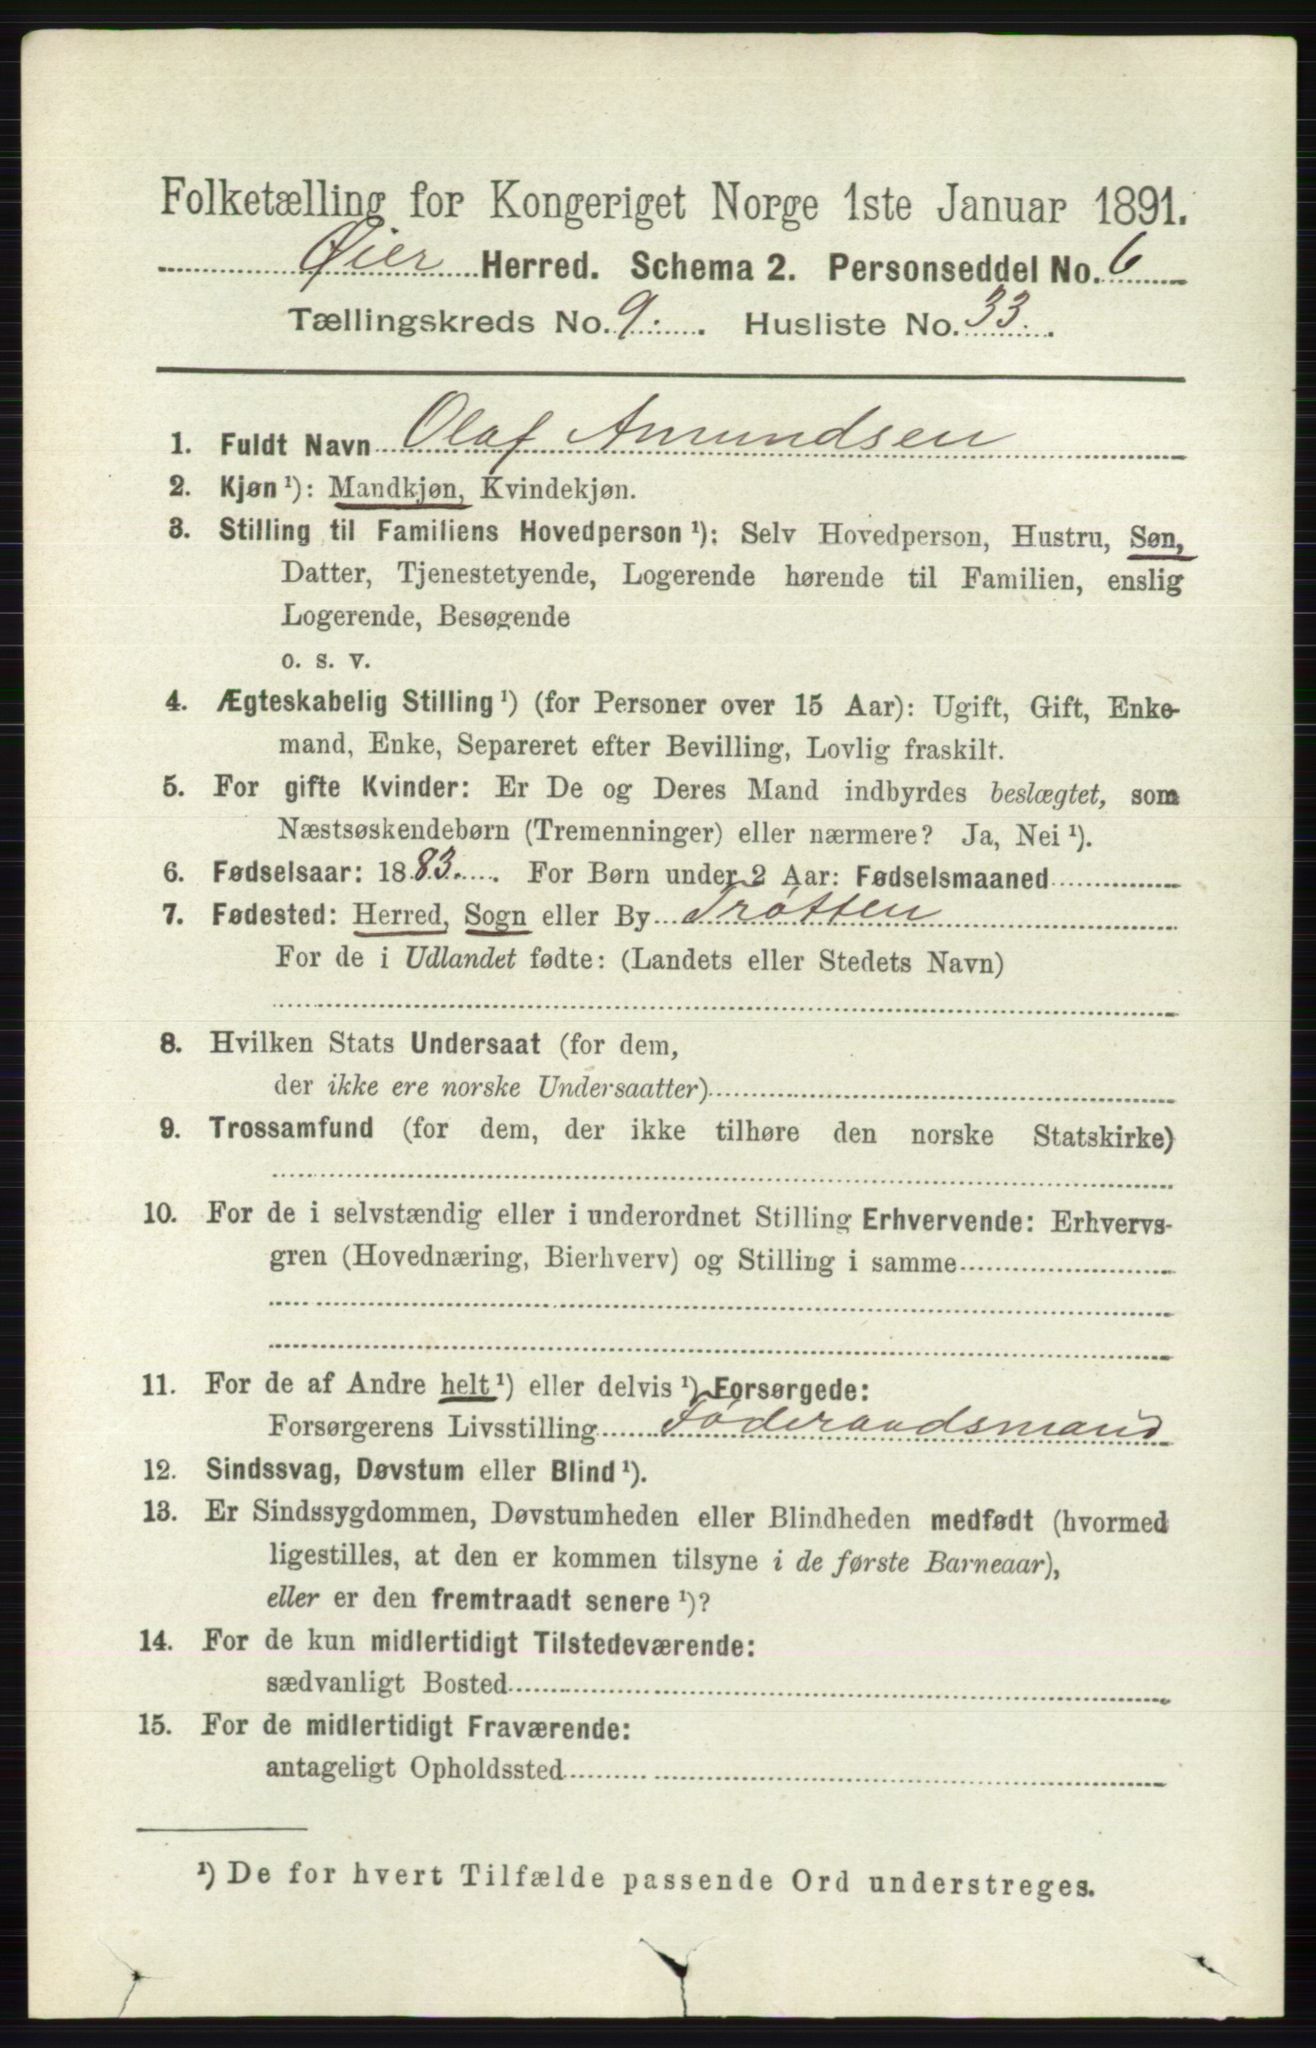 Folketælling for Kongeriget Norge 1ste Januar 1891.
Øier Herred. Schema 2. Personseddel No. 6
Tællingskreds No. 9. Husliste No. 33.
1. Fuldt Navn Olaf Amundsen
2. Kjøn ¹): Mandkjøn, Kvindekjøn.
3. Stilling til Familiens Hovedperson ¹): Selv Hovedperson, Hustru, Søn,
Datter, Tjenestetyende, Logerende hørende til Familien, enslig
Logerende, Besøgende
o. s. v.
4. Ægteskabelig Stilling ¹) (for Personer over 15 Aar): Ugift, Gift, Enke-
mand, Enke, Separeret efter Bevilling, Lovlig fraskilt.
5. For gifte Kvinder: Er De og Deres Mand indbyrdes beslægtet, som
Næstsøskendebørn (Tremenninger) eller nærmere? Ja, Nei ¹).
6. Fødselsaar: 1883. For Børn under 2 Aar: Fødselsmaaned
7. Fødested: Herred, Sogn eller By Trøtten
For de i Udlandet fødte: (Landets eller Stedets Navn)
8. Hvilken Stats Undersaat (for dem,
der ikke ere norske Undersaatter)
9. Trossamfund (for dem, der ikke tilhøre den norske Statskirke)
10. For de i selvstændig eller i underordnet Stilling Erhvervende: Erhvervs-
gren (Hovednæring, Bierhverv) og Stilling i samme
11. For de af Andre helt ¹) eller delvis ¹) Forsørgede:
Forsørgerens Livsstilling Føderaadsmand
12. Sindssvag, Døvstum eller Blind ¹).
13. Er Sindssygdommen, Døvstumheden eller Blindheden medfødt (hvormed
ligestilles, at den er kommen tilsyne i de første Barneaar),
eller er den fremtraadt senere ¹)?
14. For de kun midlertidigt Tilstedeværende:
sædvanligt Bosted
15. For de midlertidigt Fraværende:
antageligt Opholdssted
¹) De for hvert Tilfælde passende Ord understreges.